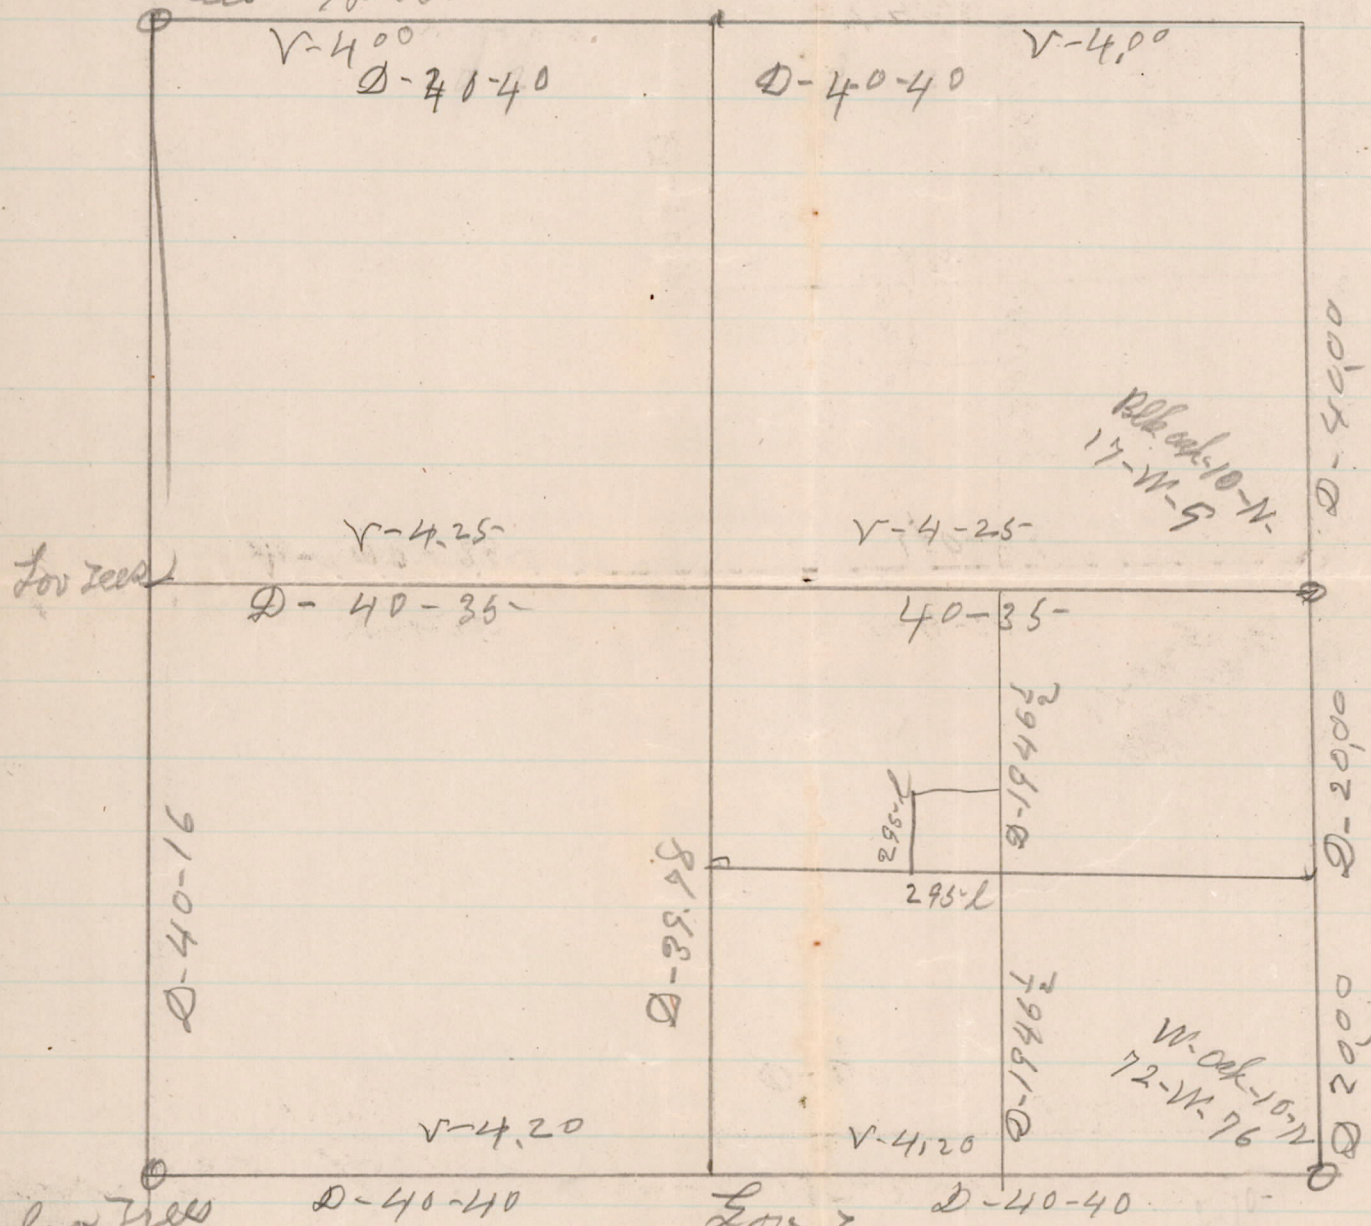 V-4⁰⁰
V-4,⁰⁰
D-40-40
D-40-40
D-40,00
Blk oak-10-N-
17-W-5
V-4.25-
V-4-25-
D- 40-35-
40-35-
D-1946½
D-20,00
295-l
295-l
D-40-16
D-39.78
D-1946½
W-oak-10-N
72-W-76
D 20,00
V-4,20
V-4,20
D-40-40
D-40-40
Trees